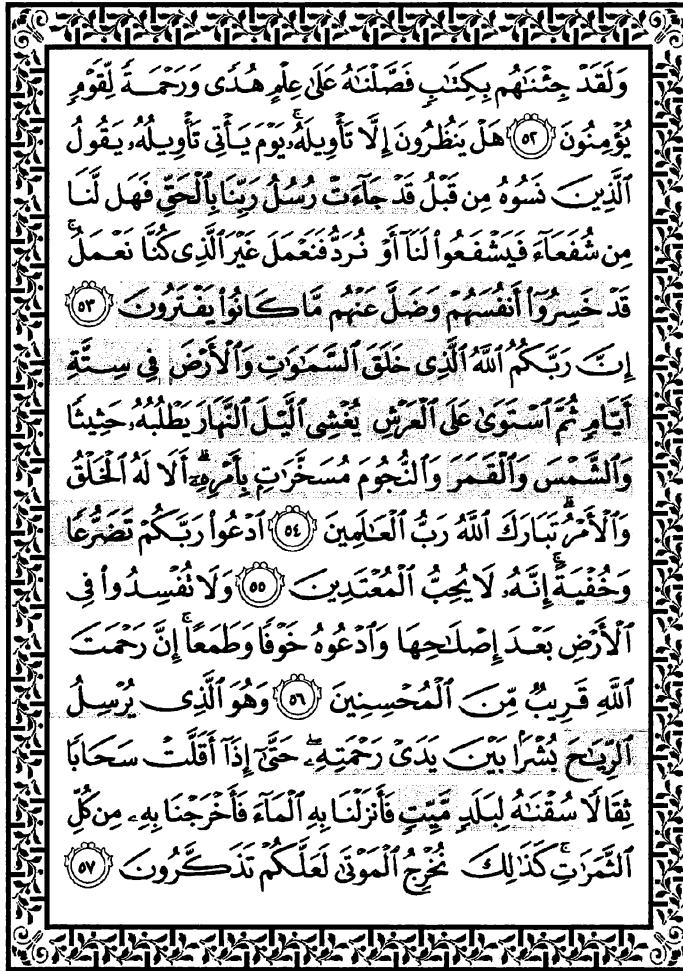 وَلَقَدْ جِئْنَٰهُم بِكِتَٰبٍ فَصَّلْنَٰهُ عَلَىٰ عِلْمٍ هُدًى وَرَحْمَةً لِّقَوْمٍ
يُؤْمِنُونَ ٥٢ هَلْ يَنظُرُونَ إِلَّا تَأْوِيلَهُۥ ۚ يَوْمَ يَأْتِى تَأْوِيلُهُۥ يَقُولُ
ٱلَّذِينَ نَسُوهُ مِن قَبْلُ قَدْ جَآءَتْ رُسُلُ رَبِّنَا بِٱلْحَقِّ فَهَل لَّنَا
مِن شُفَعَآءَ فَيَشْفَعُوا۟ لَنَآ أَوْ نُرَدُّ فَنَعْمَلَ غَيْرَ ٱلَّذِى كُنَّا نَعْمَلُ ۚ
قَدْ خَسِرُوٓا۟ أَنفُسَهُمْ وَضَلَّ عَنْهُم مَّا كَانُوا۟ يَفْتَرُونَ ٥٣
إِنَّ رَبَّكُمُ ٱللَّهُ ٱلَّذِى خَلَقَ ٱلسَّمَٰوَٰتِ وَٱلْأَرْضَ فِى سِتَّةِ
أَيَّامٍ ثُمَّ ٱسْتَوَىٰ عَلَى ٱلْعَرْشِ يُغْشِى ٱلَّيْلَ ٱلنَّهَارَ يَطْلُبُهُۥ حَثِيثًا
وَٱلشَّمْسَ وَٱلْقَمَرَ وَٱلنُّجُومَ مُسَخَّرَٰتٍۭ بِأَمْرِهِۦٓ ۗ أَلَا لَهُ ٱلْخَلْقُ
وَٱلْأَمْرُ ۗ تَبَارَكَ ٱللَّهُ رَبُّ ٱلْعَٰلَمِينَ ٥٤ ٱدْعُوا۟ رَبَّكُمْ تَضَرُّعًا
وَخُفْيَةً ۚ إِنَّهُۥ لَا يُحِبُّ ٱلْمُعْتَدِينَ ٥٥ وَلَا تُفْسِدُوا۟ فِى
ٱلْأَرْضِ بَعْدَ إِصْلَٰحِهَا وَٱدْعُوهُ خَوْفًا وَطَمَعًا ۚ إِنَّ رَحْمَتَ
ٱللَّهِ قَرِيبٌ مِّنَ ٱلْمُحْسِنِينَ ٥٦ وَهُوَ ٱلَّذِى يُرْسِلُ
ٱلرِّيَٰحَ بُشْرًۢا بَيْنَ يَدَىْ رَحْمَتِهِۦ ۖ حَتَّىٰٓ إِذَآ أَقَلَّتْ سَحَابًا
ثِقَالًا سُقْنَٰهُ لِبَلَدٍ مَّيِّتٍ فَأَنزَلْنَا بِهِ ٱلْمَآءَ فَأَخْرَجْنَا بِهِۦ مِن كُلِّ
ٱلثَّمَرَٰتِ ۚ كَذَٰلِكَ نُخْرِجُ ٱلْمَوْتَىٰ لَعَلَّكُمْ تَذَكَّرُونَ ٥٧